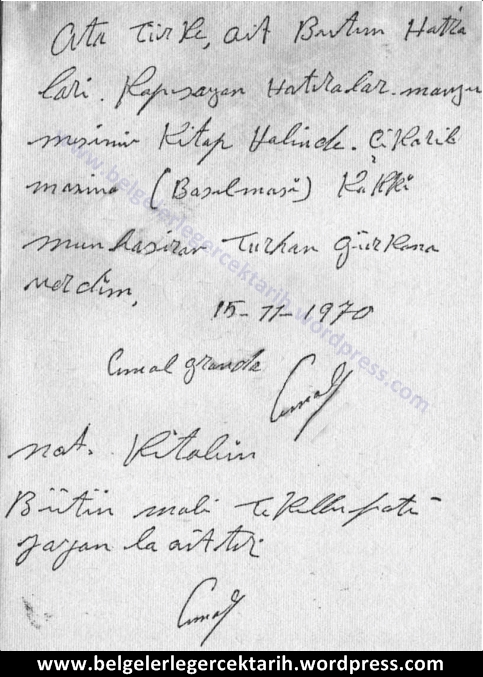 Ata Türke, ait Bütün Hatıra
ları. Kapsayan Hatıralar. manzu
mesinin Kitap Halinde. Çıkarıl
masına (Basılması) Hakkı
munhasıran Turhan Gürkana
verdim,
15-11-1970
Cemal Granda
Cemal
not. Kitabın
Bütün mali Tekellufatı
yayan la aittir
Cemal
www.belgelerlegercektarih.wordpress.com
www.belgelerlegercektarih.wordpress.com